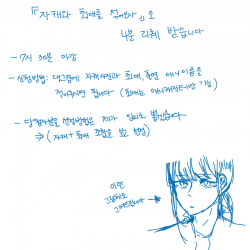 『자캐와 최애를 섞어보자』로
4분 리퀘 받습니다
- 7시 30분 마감
- 신청방법: 댓글에 자캐사진과 최애, 출연 애니이름을
적어주시면 됩니다 (최애는 애니캐릭터만 가능)
- 당첨자분들 선정방법은 제가 임의로 뽑습니다
⇒ (자캐 + 최애 조합을 보고 선정)
이런
그림체로
그려드립니다